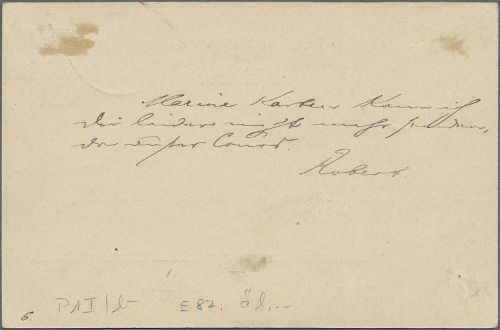 Marine Karten kann ich
Dir leider nicht mehr senden,
da außer Cours.
Robert
P1I/b E87. äl,..
6.